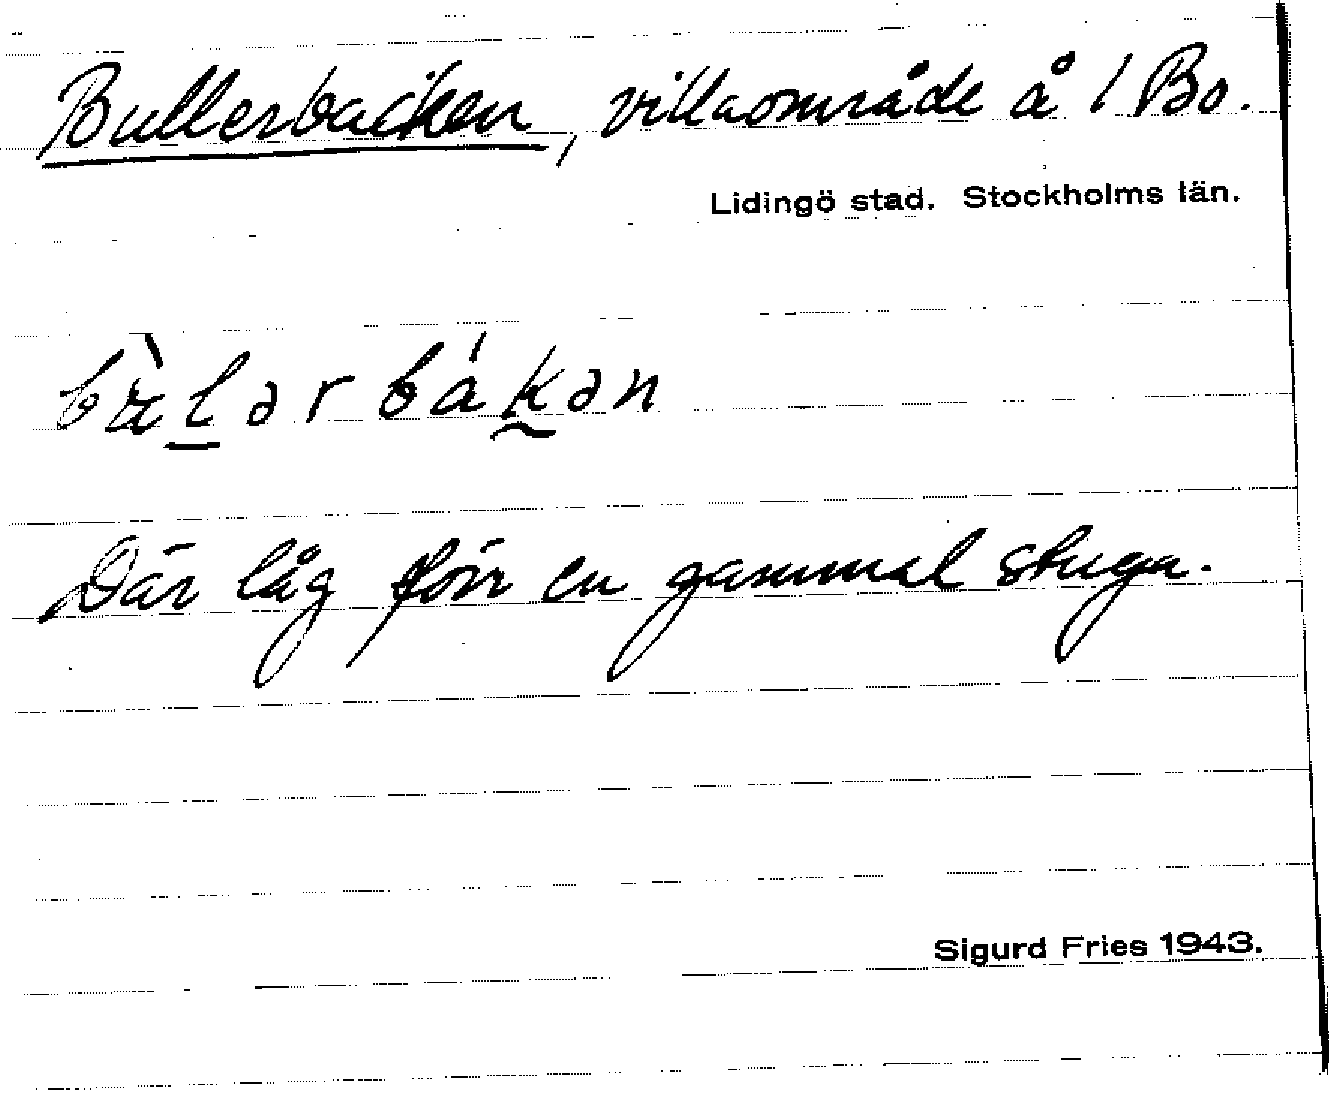 Bullerbacken, villaområde å 1 Bo.
Lidingö stad. Stockholms län.
Där låg förr en gammal stuga.
Sigurd Fries 1943.